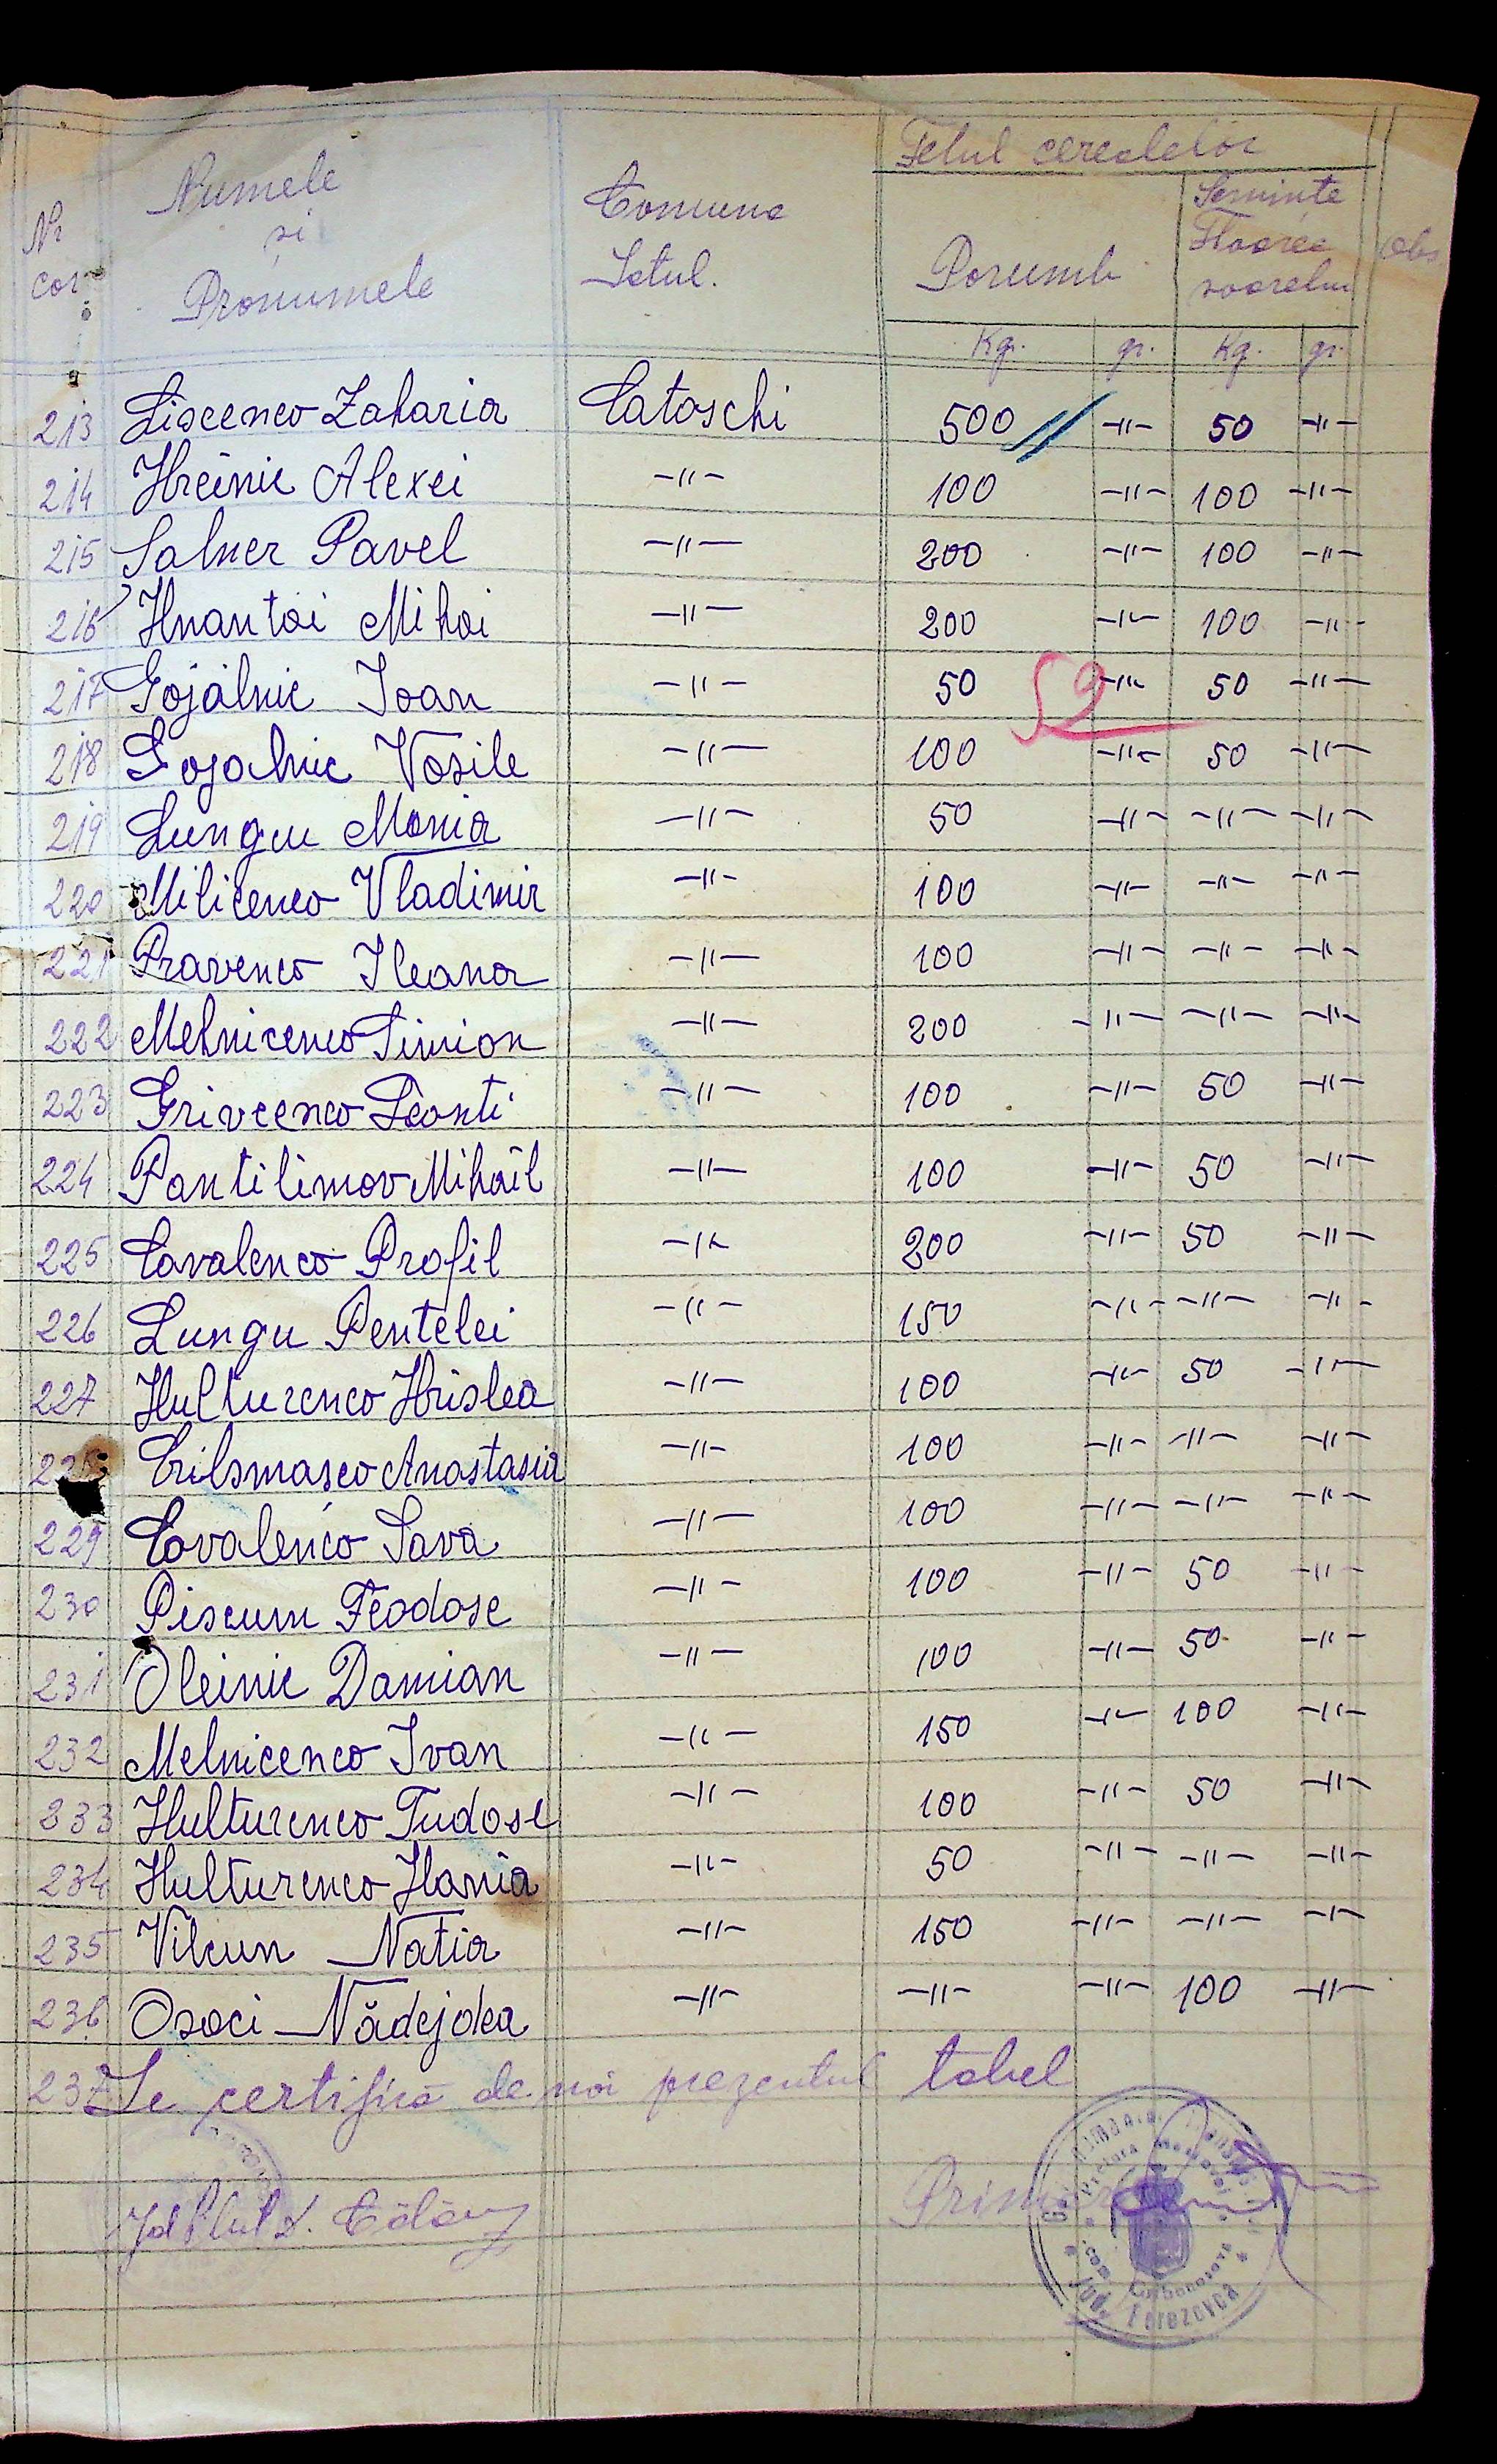 Nr cor. Numele și Pronumele Comuna Satul. Felul cerealelor Porumb Seminte Floarea soarelui Obs
Kg. gr. Kg. gr.
213 Liscenco Zaharia Catoschi 500 -"- 50 -"-
214 Hreinic Alexei -"- 100 -"- 100 -"-
215 Salner Pavel -"- 200 -"- 100 -"-
216 Hnantoi Mihai -"- 200 -"- 100 -"-
217 Gojalnic Ioan -"- 50 -"- 50 -"-
52
218 Gojalnic Vasile -"- 100 -"- 50 -"-
219 Lungu Maria -"- 50 -"- -"- -"-
220 Milicenco Vladimir -"- 100 -"- -"- -"-
221 Pravenco Ileana -"- 100 -"- -"- -"-
222 Melnicenco Simion -"- 200 -"- -"- -"-
223 Grivcenco Leonti -"- 100 -"- 50 -"-
224 Pantilimov Mihail -"- 100 -"- 50 -"-
225 Covalenco Profil -"- 200 -"- 50 -"-
226 Lungu Pentelei -"- 150 -"- -"- -"-
227 Hulturenco Hristea -"- 100 -"- 50 -"-
Anastasia -"- 100 -"- -"- -"-
229 Covalenco Sava -"- 100 -"- -"- -"-
230 Piscum Feodose -"- 100 -"- 50 -"-
231 Oleinic Damian -"- 100 -"- 50 -"-
232 Melnicenco Ivan -"- 150 -"- 100 -"-
233 Hulturenco Tudose -"- 100 -"- 50 -"-
234 Hulturenco Hania -"- 50 -"- -"- -"-
235 Vilcun Natia -"- 150 -"- -"- -"-
236 Osoci Nădejdea -"- -"- -"- 100 -"-
237 Se certifică de noi prezentul tabel
Primar
Jud. Berezovca